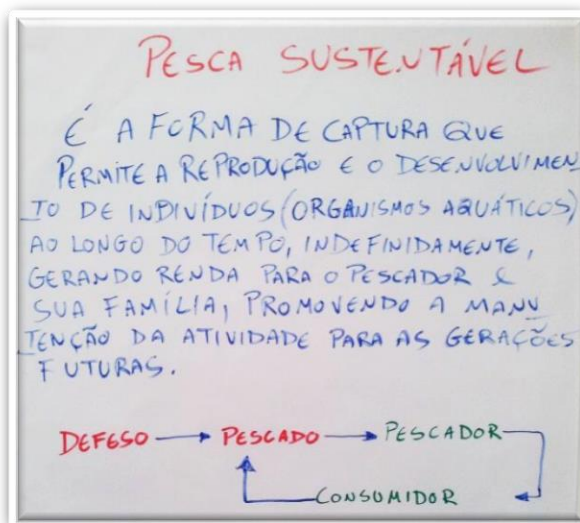 PESCA SUSTENTÁVEL
É A FORMA DE CAPTURA QUE
PERMITE A REPRODUÇÃO E O DESENVOLVIMEN
TO DE INDIVÍDUOS (ORGANISMOS AQUÁTICOS)
AO LONGO DO TEMPO, INDEFINIDAMENTE,
GERANDO RENDA PARA O PESCADOR E
SUA FAMÍLIA, PROMOVENDO A MANU
TENÇÃO DA ATIVIDADE PARA AS GERAÇÕES
FUTURAS.
DEFESO → PESCADO → PESCADOR
CONSUMIDOR